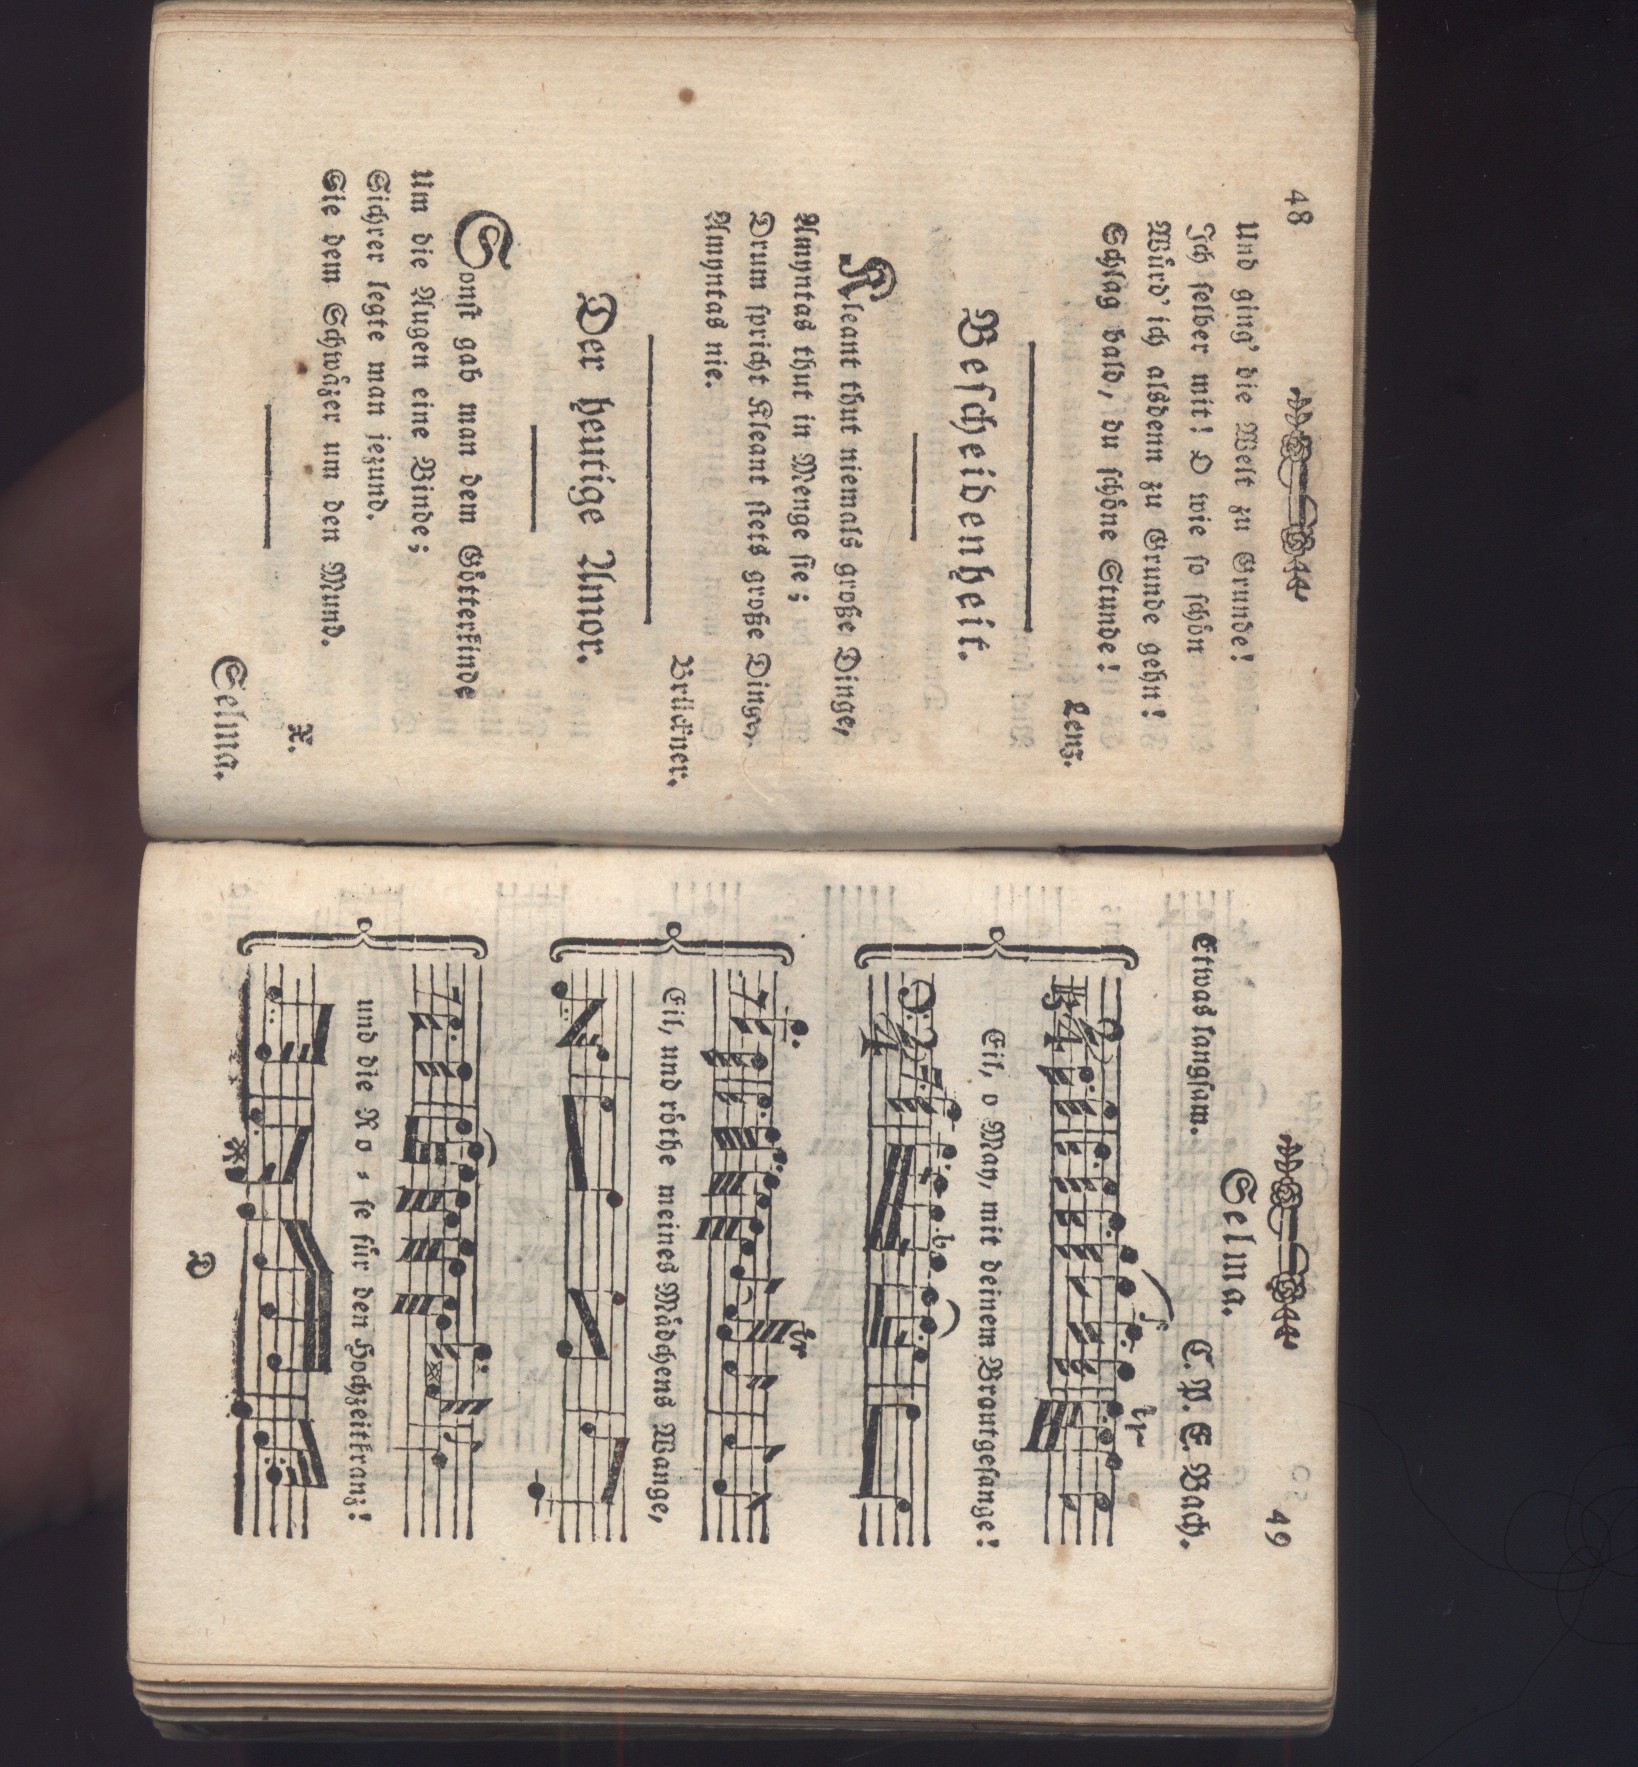 48
Und ging' die Welt zu Grunde!
Ich selber mit! O wie so schön
Würd' ich alsdenn zu Grunde gehn!
Schlag bald, du schöne Stunde!
Lenz.
Bescheidenheit.
Kleant thut niemals große Dinge,
Amyntas thut in Menge sie;
Drum spricht Kleant stets große Dinge,
Amyntas nie.
Brückner.
Der heutige Amor.
Sonst gab man dem Götterkinde
Um die Augen eine Binde;
Sichrer legte man jezund.
Sie dem Schwäzer um den Mund.
X.
Selma.
49
Selma.
Etwas langsam. C. P. E. Bach.
tr
Eil, o May, mit deinem Brautgesange!
tr
Eil, und röthe meines Mädchens Wange,
und die Ro - se für den Hochzeitkranz!
D